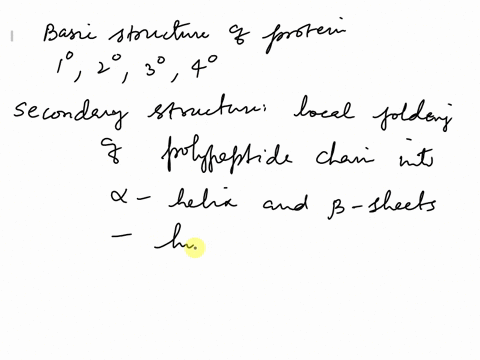 Basic structure of protein
1°, 2°, 3°, 4°
Secondary structure: local folding
of polypeptide chain into
α - helix and β - sheets
-